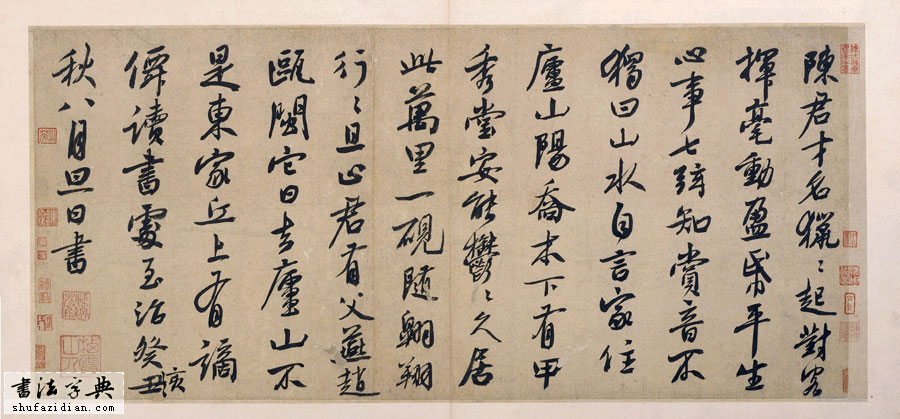 陳君才名獵〻起對客
揮毫動盈帋平生
心事七弦知賞音不
獨曰山水自言家住
廬山陽喬木下有甲
秀堂安能鬱〻久居
此萬里一硯隨翱翔
行〻且止君有父燕趙
甌閩它日去廬山不
是東家丘上有謫
僊讀書處至治癸亥丑
秋八月旦日書
書法字典
shufazidian.com